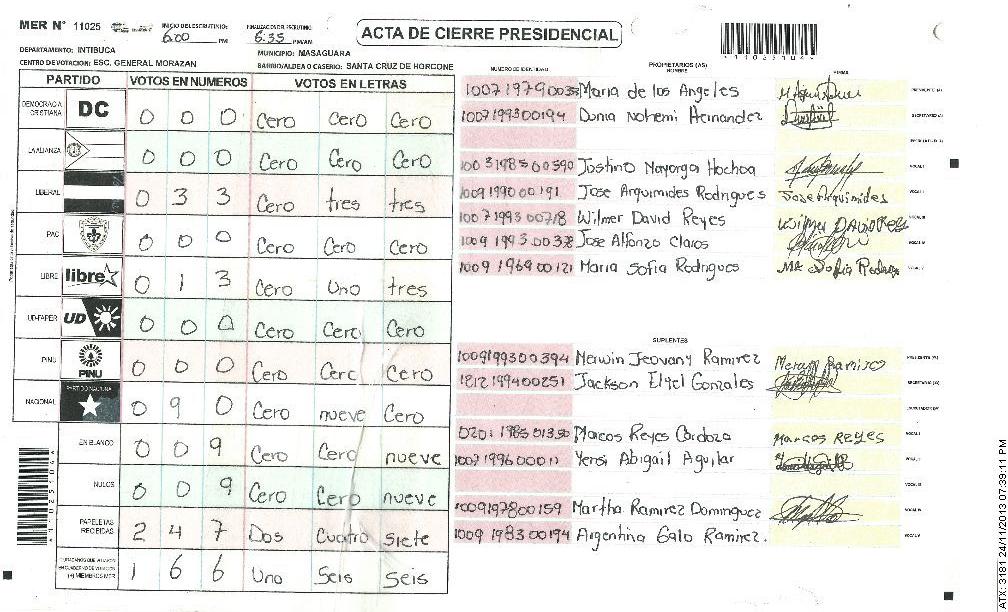 MER N° 11025
INICIO DEL ESCRUTINIO: 6:00 PM
FINALIZACION DEL ESCRUTINIO: 6:35 PM/AM
ACTA DE CIERRE PRESIDENCIAL
DEPARTAMENTO: INTIBUCA
MUNICIPIO: MASAGUARA
CENTRO DE VOTACION: ESC. GENERAL MORAZAN
BARRIO/ALDEA O CASERIO: SANTA CRUZ DE HORCONE
PARTIDO VOTOS EN NUMEROS VOTOS EN LETRAS
DEMOCRACIA CRISTIANA DC 0 0 0 Cero Cero Cero
LA ALIANZA 0 0 0 Cero Cero Cero
LIBERAL 0 3 3 Cero tres tres
PAC 0 0 0 Cero Cero Cero
LIBRE libre 0 1 3 Cero Uno tres
UD-FAPER UD 0 0 0 Cero Cero Cero
PINU PINU 0 0 0 Cero Cero Cero
NACIONAL PARTIDO NACIONAL 0 9 0 Cero nueve Cero
EN BLANCO 0 0 9 Cero Cero nueve
NULOS 0 0 9 Cero Cero nueve
PAPELETAS RECIBIDAS 2 4 7 Dos Cuatro siete
(+) MIEMBROS MER 1 6 6 Uno Seis Seis
NUMERO DE IDENTIDAD PROPIETARIOS (AS) NOMBRE FIRMA
Maria de los Angeles PRESIDENTE (A)
1007199300194 Dunia Nohemi Hernandez SECRETARIO (A)
1003198500590 Justino Mayorga Hochoa VOCAL I
1009199000191 Jose Arquimides Rodrigues Jose Arquimides
1007199300718 Wilmer David Reyes Wilmer David Reyes
Jose Alfonzo Claros
1009196900121 Maria Sofia Rodrigues Ma Sofia Rodrigu
SUPLENTES
1009199300394 Merwin Jeovany Ramirez Merwin Ramirez PRESIDENTE (A)
1812199400251 Jackson Eliel Gonzales SECRETARIO (A)
0201198501350 Marcos Reyes Cardoza Marcos Reyes VOCAL I
Yensi Abigail Aguilar
1009197800159 Martha Ramirez Dominguez
1009198300194 Argentina Galo Ramirez. VOCAL V
A11025104A
ATX: 3181 24/11/2013 07:39:11 PM